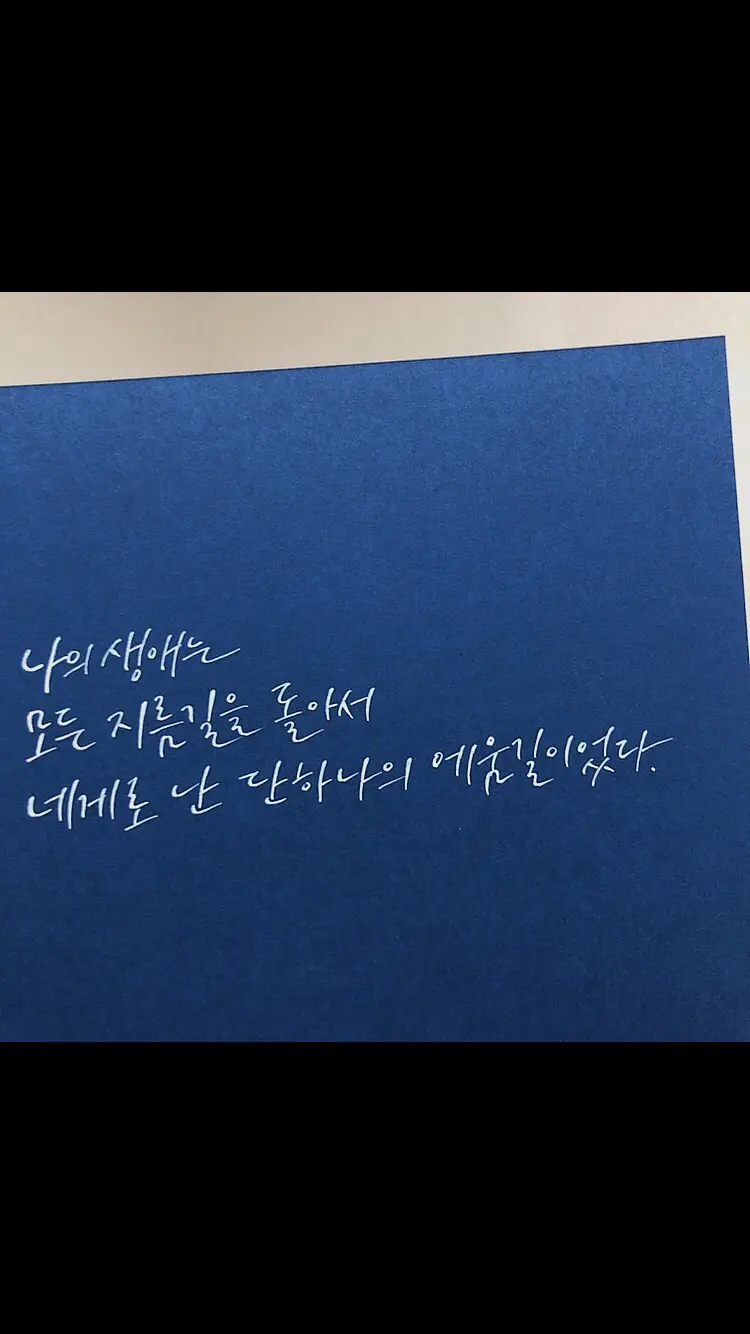 나의 생애는
모든 지름길을 돌아서
네게로 난 단하나의 에움길이었다.